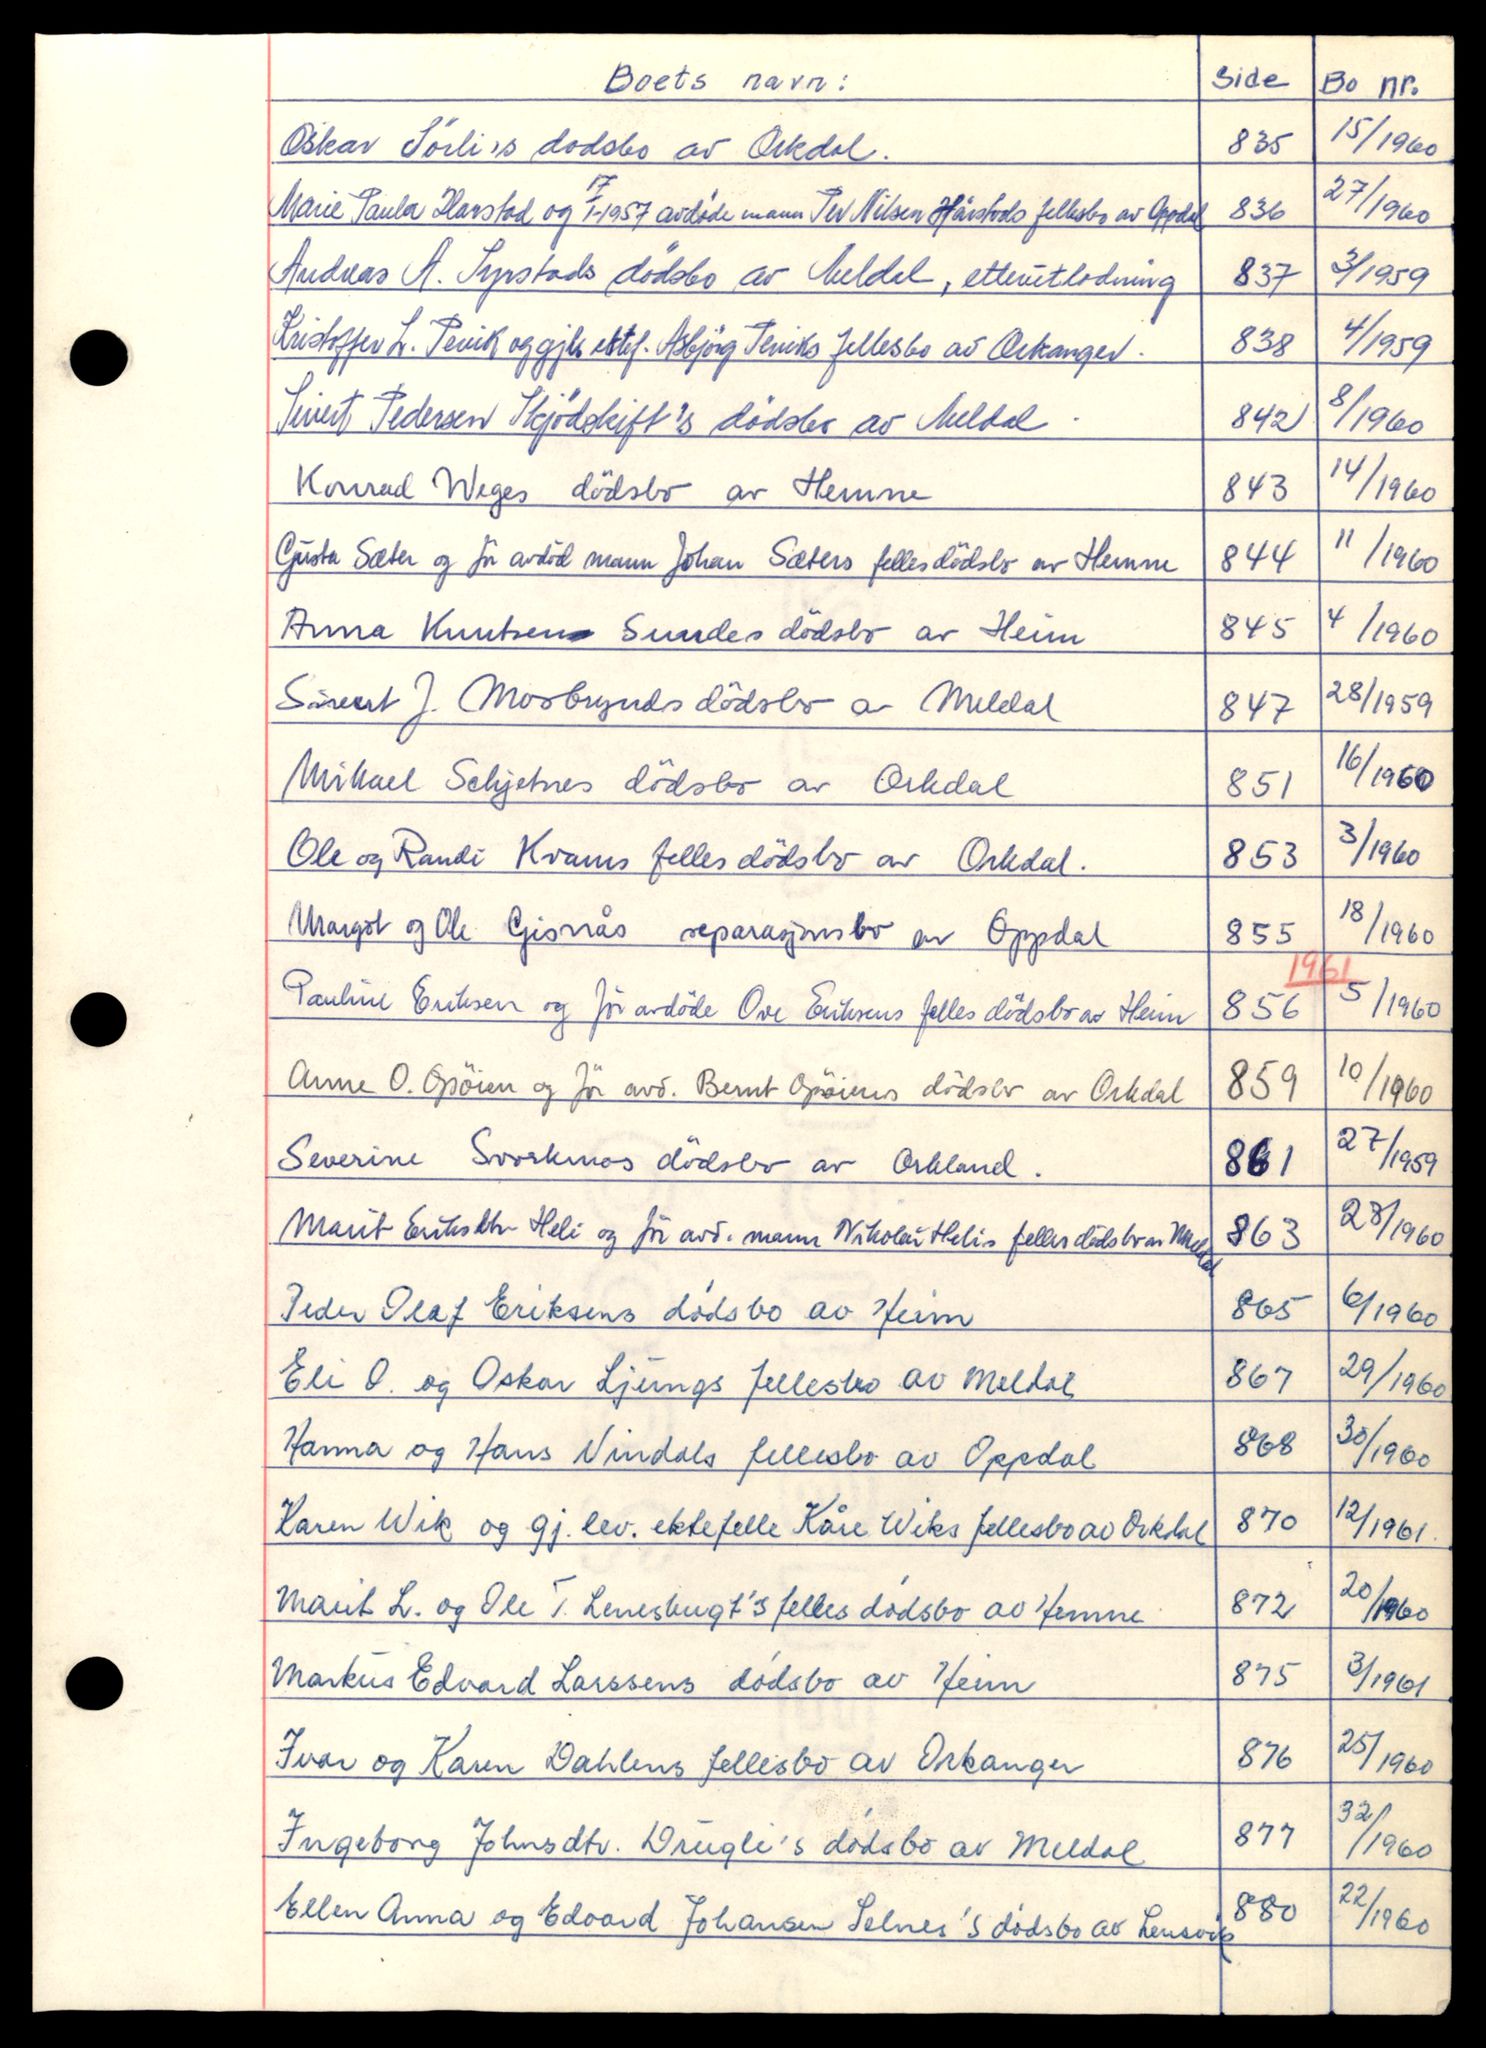 Boets navn: Side Bo nr.
Oskar Sörli's dødsbo av Orkdal. 835 15/1960
Marie Paula Harstad og 17/1-1957 avdöde mann Per Nilsen Hårstads fellesbo av Oppdal 836 27/1960
Andreas A. Syrstads dödsbo av Meldal, etterutlodning 837 3/1959
Kristoffer L. Tevik og gjl. ektef. Asbjörg Teviks fellesbo av Orkanger. 838 4/1959
Sivert Pedersen Skjödskift's dödsbo av Meldal 842 8/1960
Konrad Weges dödsbo av Hemne 843 14/1960
Gjusta Sæter og för avdöd mann Johan Sæters felles dödsbo av Hemne 844 11/1960
Anna Knutsen Sundes dödsbo av Heim 845 4/1960
Sivert J. Mosbrynds dödsbo av Meldal 847 28/1959
Mikael Schjetnes dödsbo av Orkdal 851 16/1960
Ole og Randi Kvams felles dödsbo av Orkdal. 853 3/1960
Margot og Ole Gisnås separasjonsbo av Oppdal 855 18/1960
1961
Pauline Eriksen og för avdöde Ove Eriksens felles dödsbo av Heim 856 5/1960
Anne O. Opöien og för avd. Bernt Opöiens dödsbo av Orkdal 859 10/1960
Severine Svorkmos dödsbo av Orkland. 861 27/1959
Marit Eriksdtr Heli og för avd. mann Nikolai Helis felles dödsbo av Meldal 863 28/1960
Peder Olaf Eriksens dódsbo av Heim 865 6/1960
Eli O. og Oskar Ljüngs fellesbo av Meldal 867 29/1960
Hanna og Hans Vindals fellesbo av Oppdal 868 30/1960
Karen Wik og gj.lev. ektefelle Kåre Wiks fellesbo av Orkdal 870 12/1961.
Marit L. og Ole T. Lenesbugt's felles dódsbo av Hemne 872 20/1960
Markus Edvard Larssens dódsbo av Heim 875 3/1961
Ivar og Karen Dahlens fellesbo av Orkanger 876 25/1960
Ingeborg Johnsdtr. Drugli's dódsbo av Meldal 877 32/1960
Ellen Anna og Edvard Johansen Selnes's dódsbo av Lensvik 880 22/1960